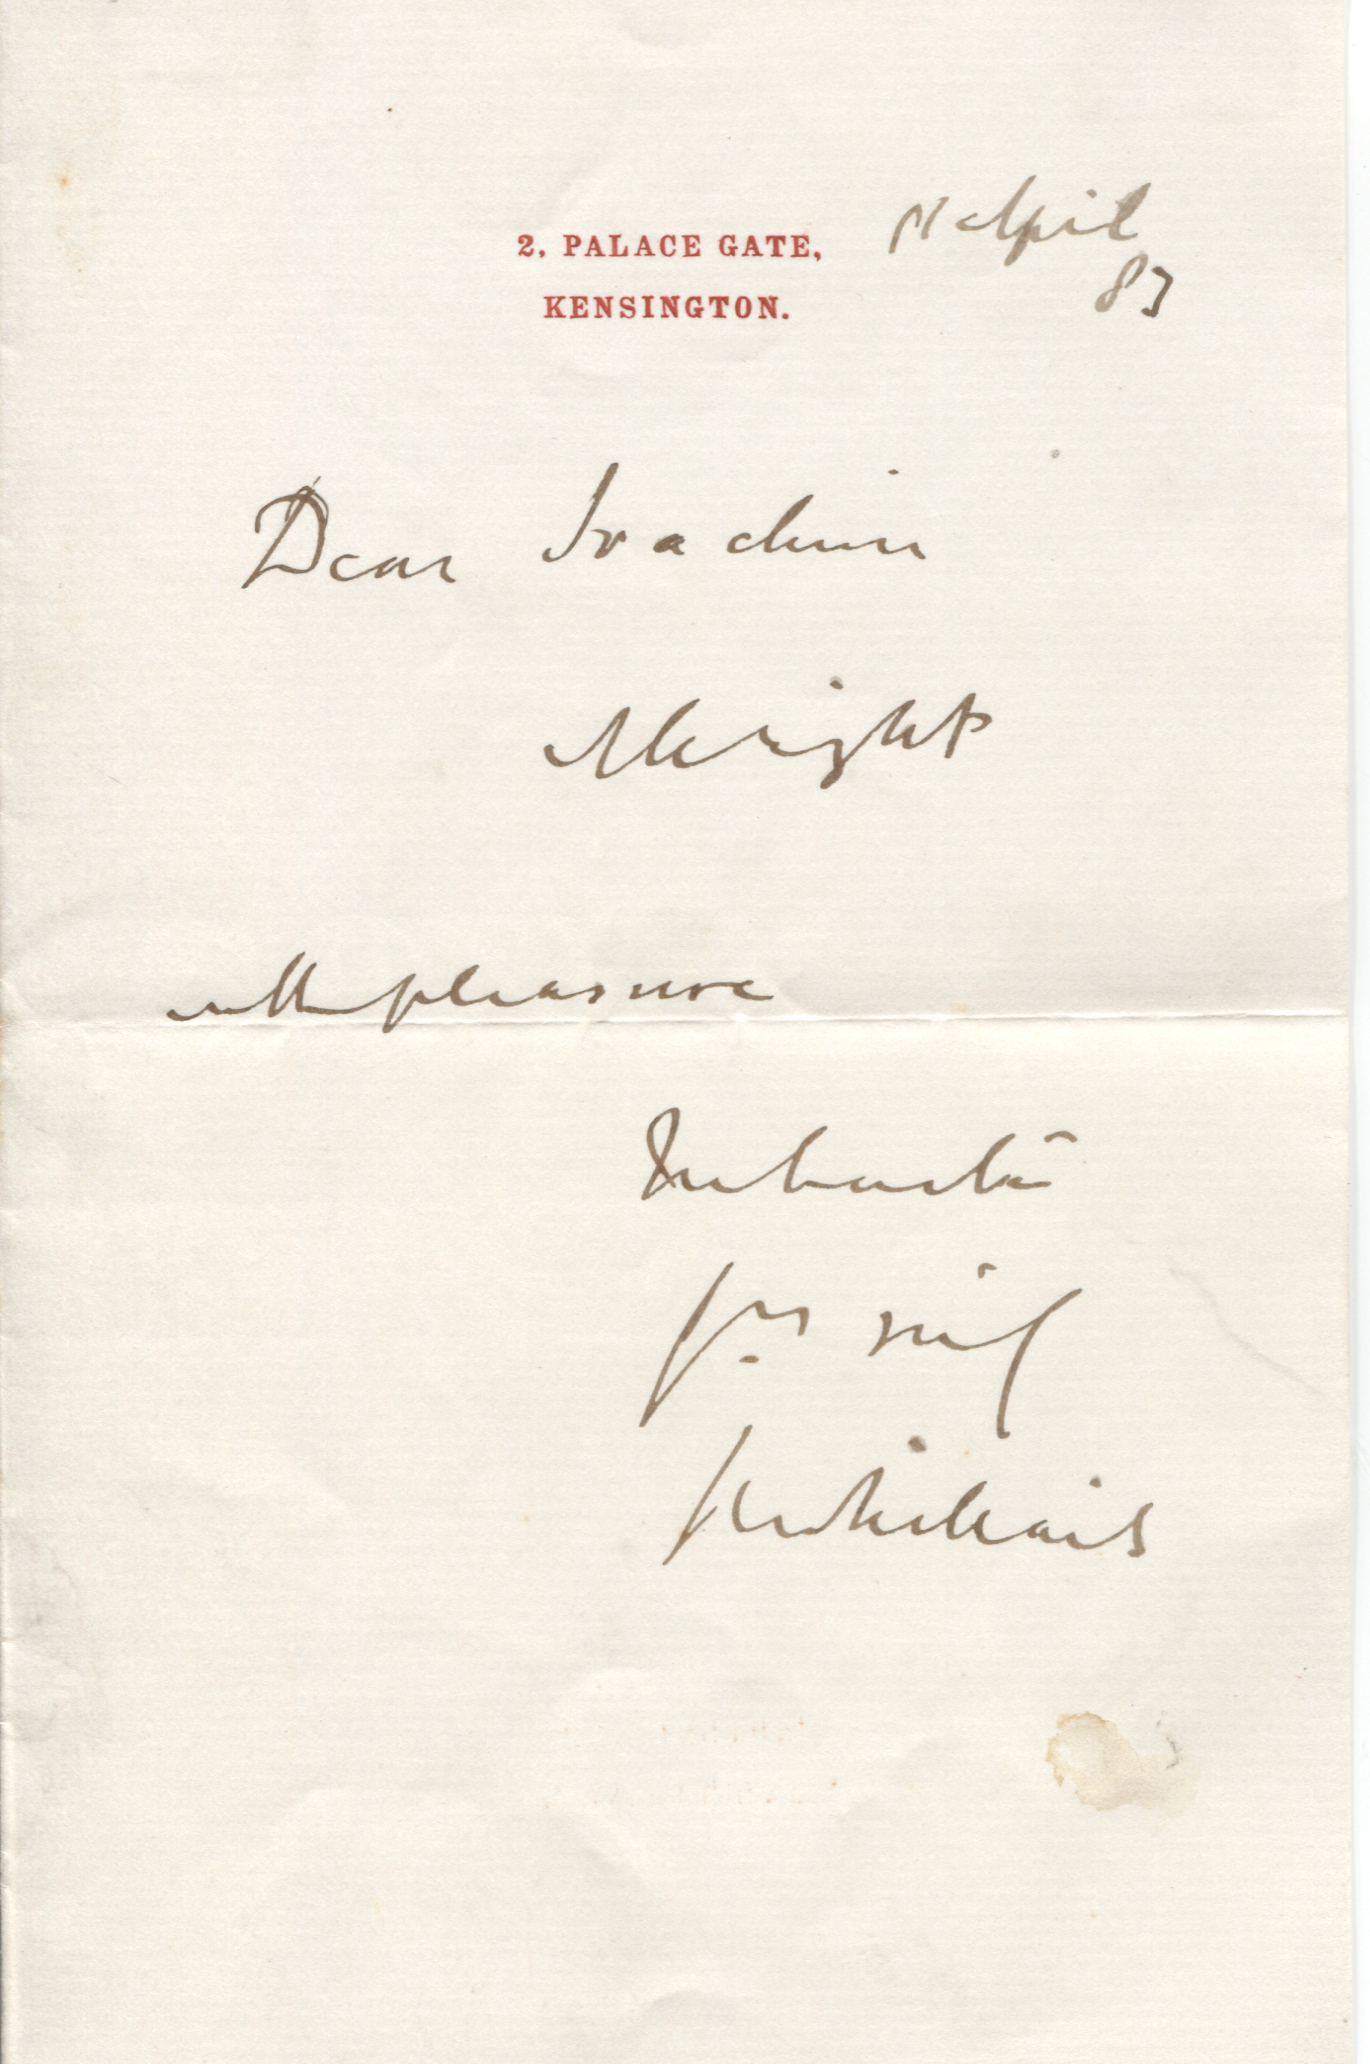 2, PALACE GATE,
KENSINGTON.
April
83
Dear Joachim
Alright
with pleasure
In haste
yrs
J E Millais